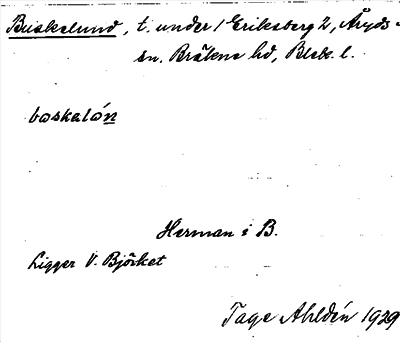 Buskelund, t. under 1 Eriksberg 2, Åryds
sn. Bräkne hd, Blek. l.
boskalón
Herman i B.
Ligger V. Björket
Tage Ahldén 1929